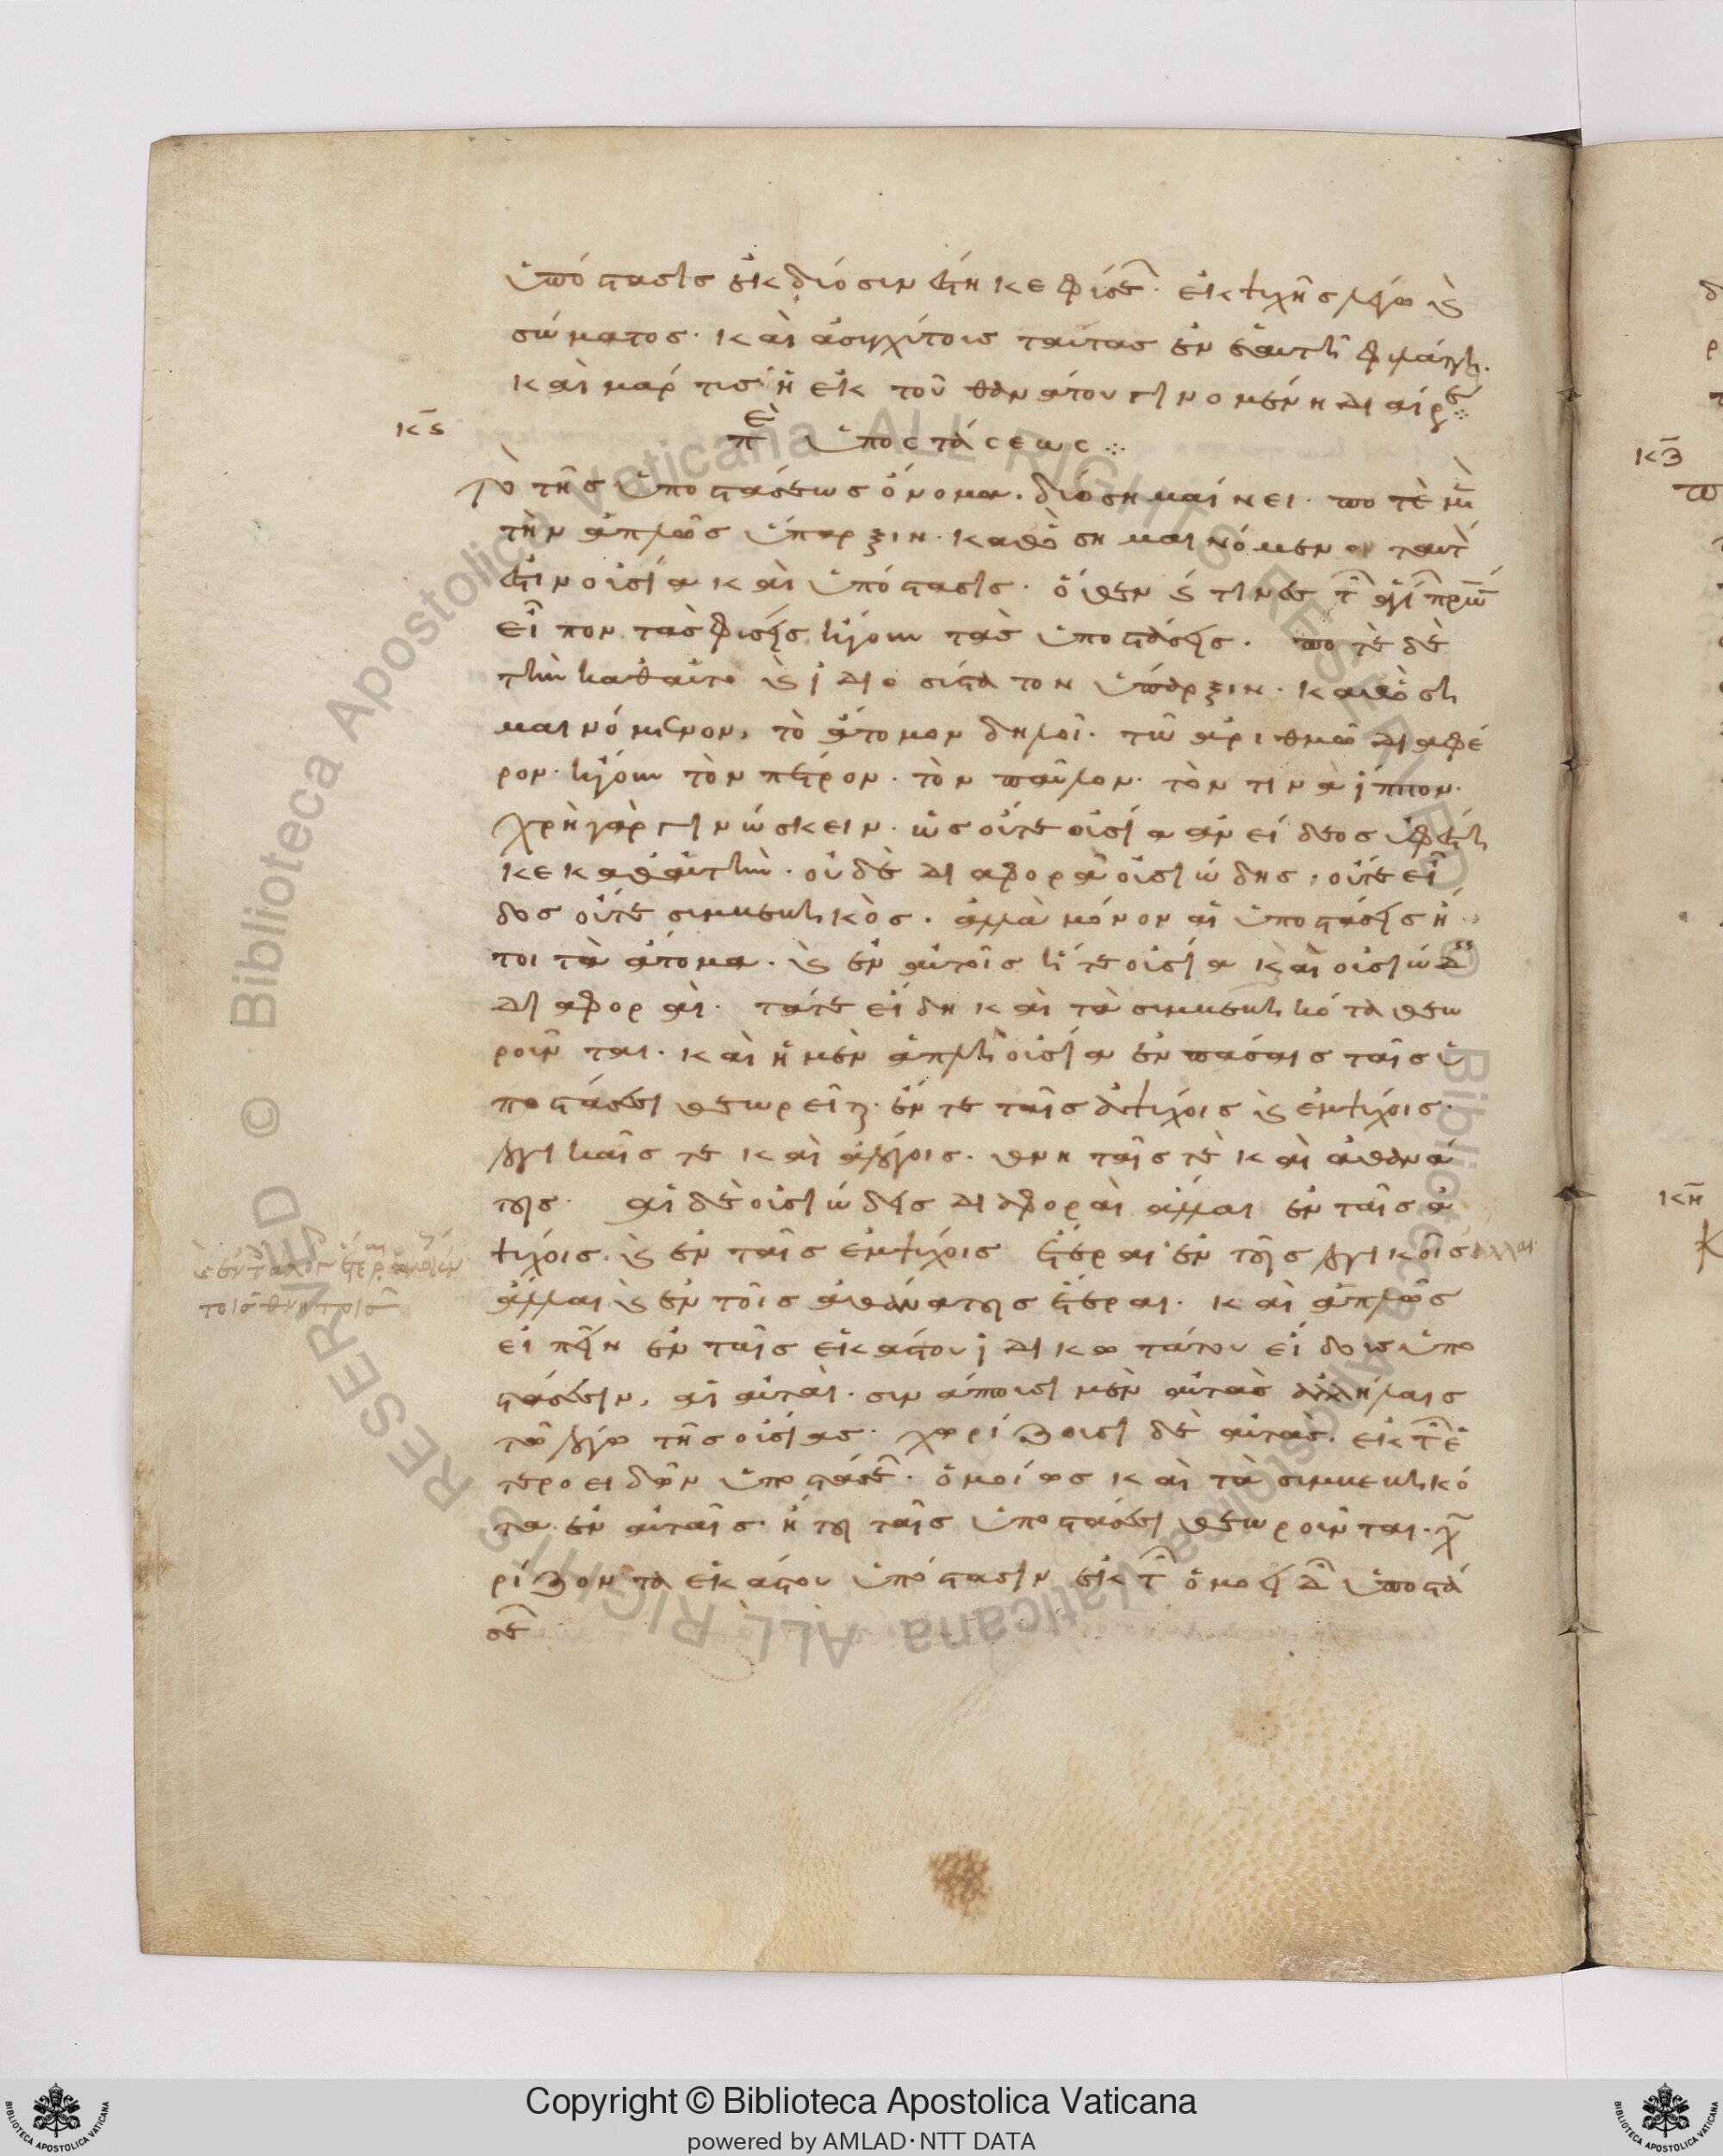 ὑπόστασις ἐκ δύο συνέστηκε φύσεων· ἐκ ψυχῆς λέγω καὶ
σώματος· καὶ ἀσυγχύτους ταύτας ἐν ἑαυτῆ φυλάττει·
καὶ μαρτυσὴ ἐκ τοῦ θανάτου γινομένη διαίρεσις
κϛ
περὶ ὑποστάσεως
Τὸ τῆς ὑποστάσεως ὄνομα· δύο σημαίνει· ποτὲ μὲν
τὴν ἁπλῶς ὕπαρξιν· καθὸ σημαινόμενον ταυτόν
ἐστιν οὐσία καὶ ὑπόστασις· ὅθεν καί τινες τῶν ἁγίων πρων
εἶπον τὰς φύσεις ἤγουν τὰς ὑποστάσεις· ποτὲ δὲ
τὴν καθαὑτὸ καὶ ἰδιοσύστατον ὕπαρξιν· καθὸ ση
μαινόμενον, τὸ ἄτομον δηλοῖ· τῶ ἀριθμῶ διαφέ
ρον· ἤγουν τὸν πέτρον· τὸν παῦλον· τὸν τινὰ ἵππον·
χρὴ γὰρ γινώσκειν· ὡς οὔτε οὐσία ἀνείδεος ὑφέστη
κε καθἑαυτὴν· οὐδὲ διαφορὰ οὐσιώδης, οὔτε εἶ
δος οὔτε συμβεβηκὸς· ἀλλὰ μόνον αἱ ὑποστάσεις ἤ
τοι τὰ ἄτομα· καὶ ἐν αὐτοῖς ἥ τε οὐσία καὶ οὐσιώδεις
διαφοραὶ· τά τε εἴδη καὶ τὰ συμβεβηκότα θεω
ροῦνται· καὶ ἡ μὲν ἁπλῆ οὐσία ἐν πάσαις ταῖς ὑ
ποστάσεσι θεωρεῖται· ἔν τε ταῖς ἀψύχοις καὶ ἐμψύχοις·
λογικαῖς τε καὶ ἀλόγοις· θνηταῖς τὲ καὶ ἀθανά
τοις· αἱ δὲ οὐσιώδεις διαφοραὶ ἄλλαι ἐν ταῖς ἀ
ψύχοις· καὶ ἐν ταῖς ἐμψύχοις ἕτεραι· ἐν τοῖς λογικοῖς ἄλλαι·
ἄλλαι καὶ ἐν τοῖς ἀθανάτοις ἕτεραι· καὶ ἁπλῶς
εἰπεῖν ἐν ταῖς ἑκάστου ἰδικωτάτου εἴδους ὑπο
στάσεσιν, αἱ αὐταὶ· συνάπτουσι μὲν αὐτὰς ἀλλήλαις
τῶ λόγω τῆς οὐσίας· χωρίζουσι δὲ αὐτὰς· ἐκ τῶν ἑ
τεροειδῶν ὑποστάσεων· ὁμοίως καὶ τὰ συμβεβηκό
τα ἐν αὐταῖς· ἤτοι ταῖς ὑποστάσεσι θεωροῦνται· χω
ρίζοντα ἑκάστου ὑπόστασιν ἐκ τῶν ὁμοειδῶν ὑποστά
σεων
κζ
κη